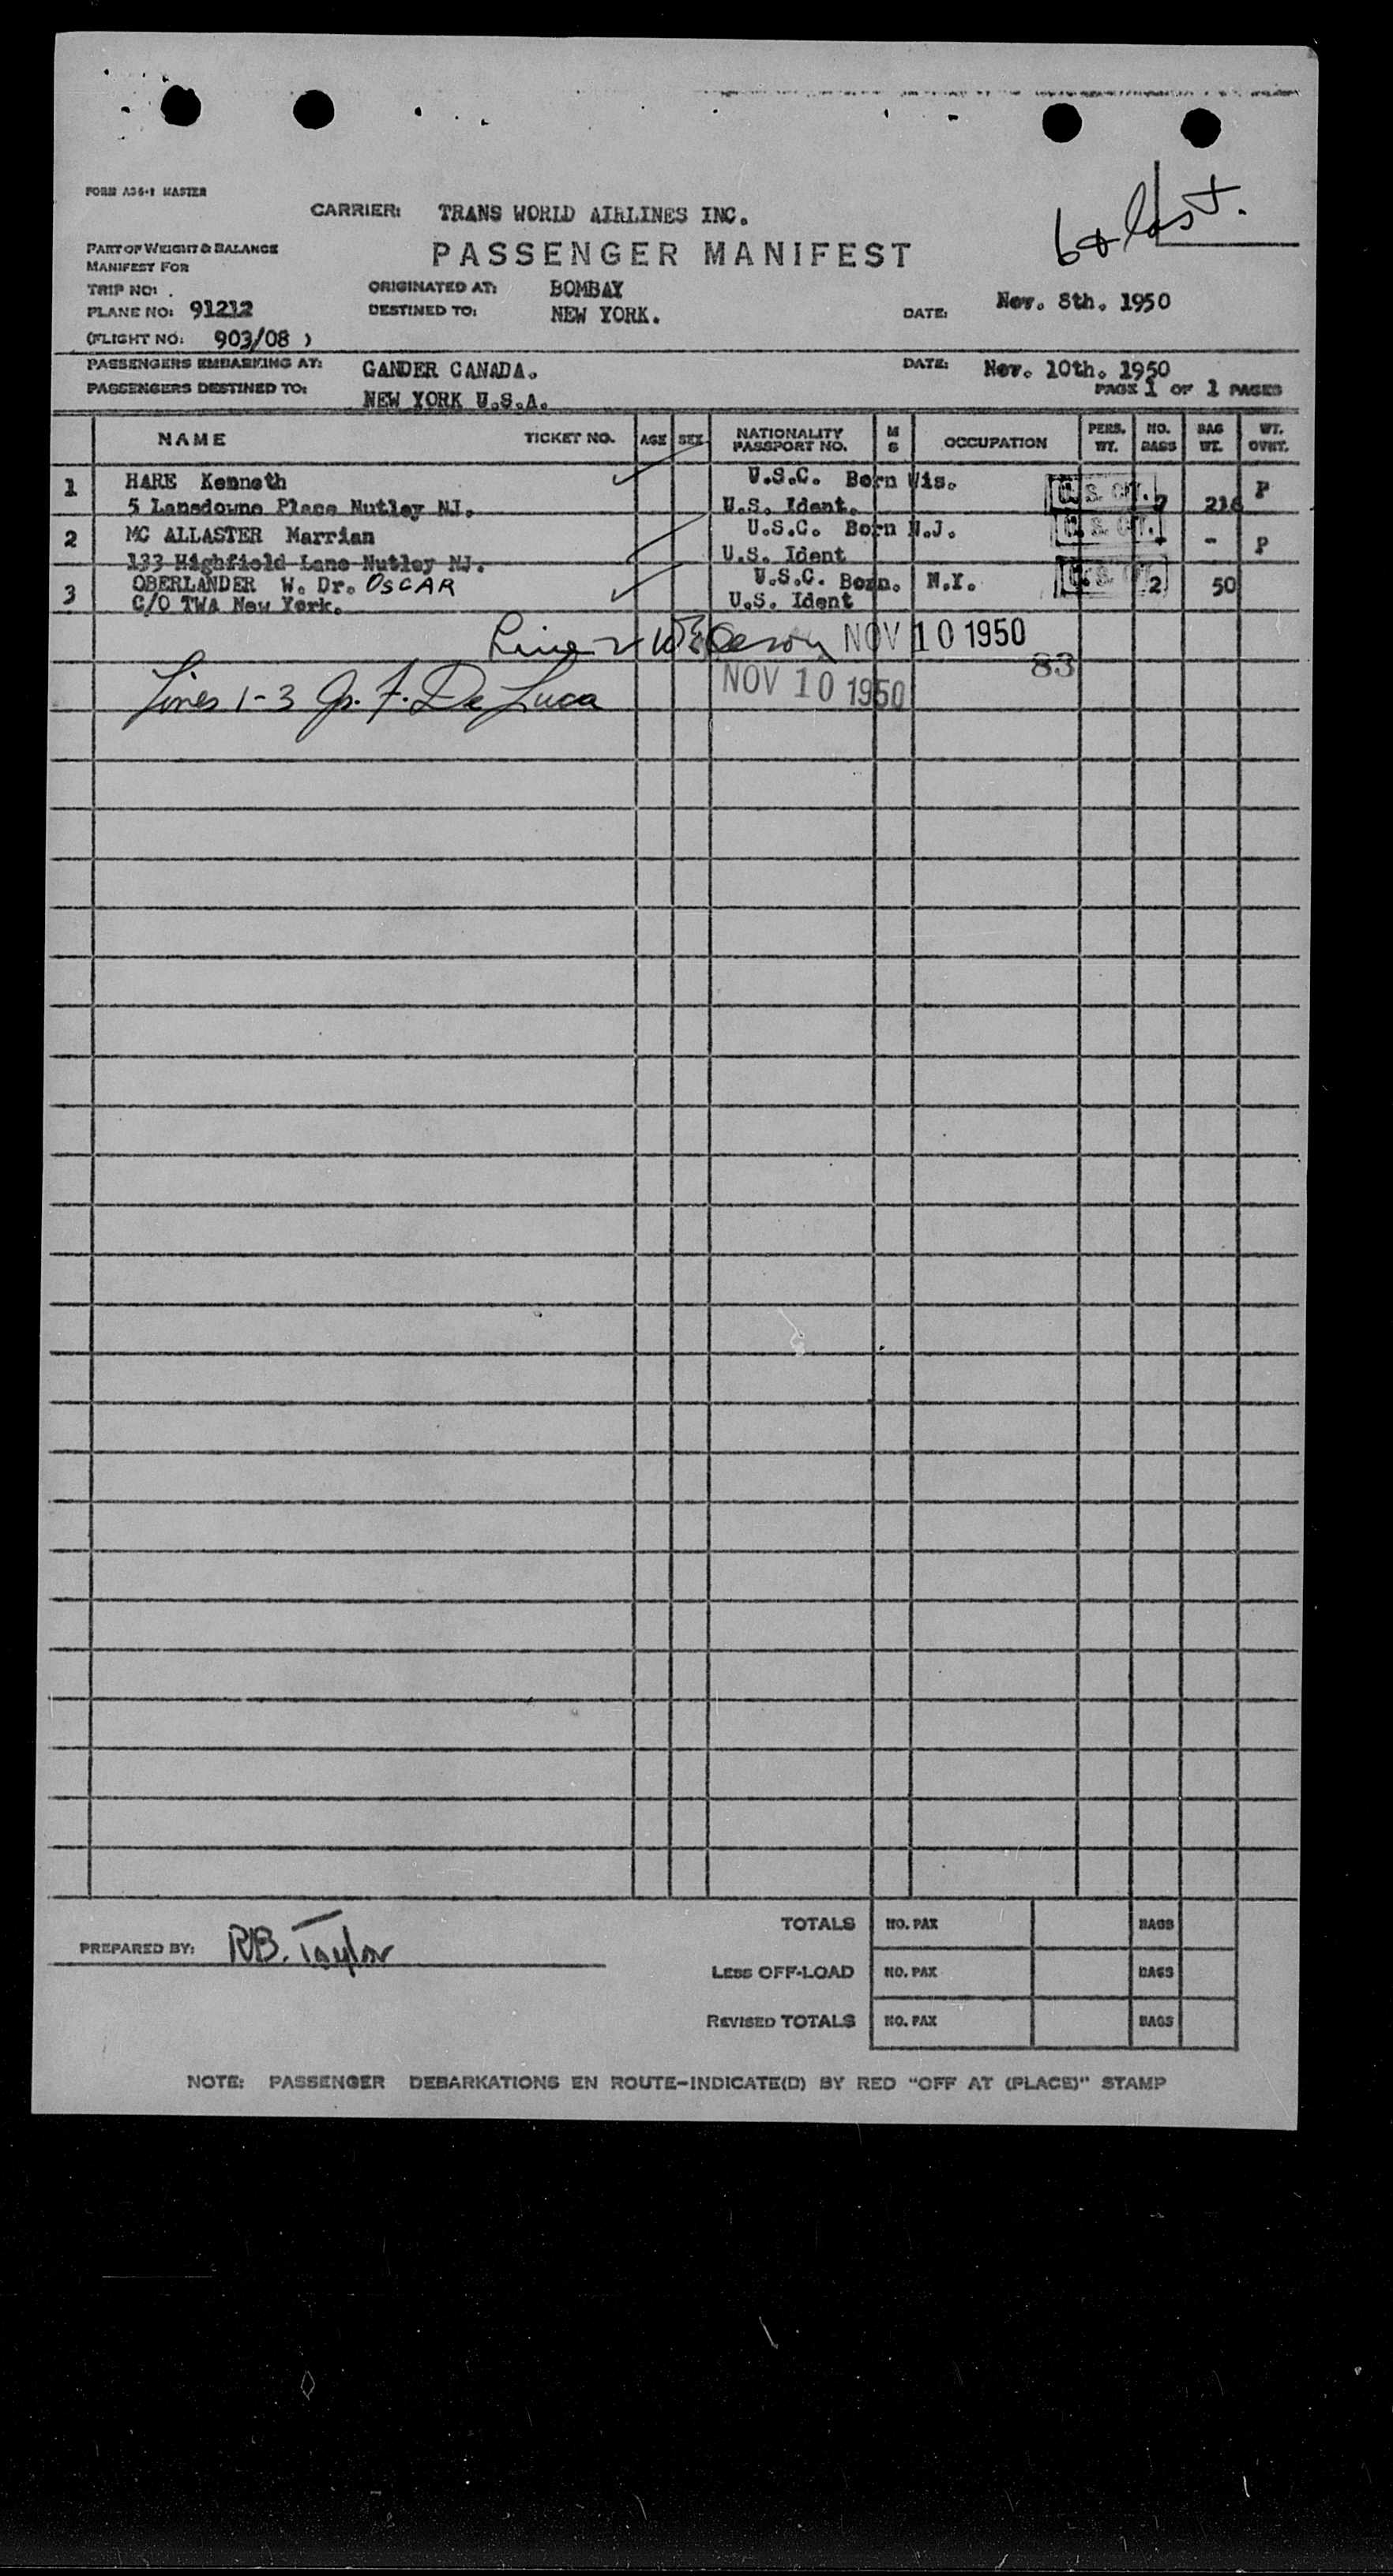 FORM A36-1 MASTER
CARRIER: TRANS WORLD AIRLINES INC.
PART OF WEIGHT & BALANCE
MANIFEST FOR
PASSENGER MANIFEST
TRIP NO: .
ORIGINATED AT: BOMBAY
PLANE NO: 91212
DESTINED TO: NEW YORK.
DATE: Nov. 8th. 1950
(FLIGHT NO: 903/08 )
PASSENGERS EMBARKING AT: GANDER CANADA.
DATE: Nov. 10th. 1950
PASSENGERS DESTINED TO: NEW YORK U.S.A.
PAGE 1 OF 1 PAGES
NAME TICKET NO. AGE SEX NATIONALITY PASSPORT NO. M S OCCUPATION PERS. WT. NO. BAGS BAG WT. WT. OVRT.
1 HARE Kenneth U.S.C. Born Wis. U.S. CIT. P
5 Lansdowne Place Nutley NJ. U.S. Ident. 7 216
2 MC ALLASTER Marrian U.S.C. Born N.J. U.S. CIT. - - P
133 Highfield Lane Nutley NJ. U.S. Ident
3 OBERLANDER W. Dr. OSCAR U.S.C. Born. N.Y. U.S. CIT. 2 50
C/O TWA New York. U.S. Ident
NOV 10 1950
83
Lines 1-3 Jr. F. De Luca NOV 10 1950
PREPARED BY: RB. Taylor
TOTALS NO. PAX BAGS
LESS OFF-LOAD NO. PAX BAGS
REVISED TOTALS NO. PAX BAGS
NOTE: PASSENGER DEBARKATIONS EN ROUTE-INDICATE(D) BY RED "OFF AT (PLACE)" STAMP